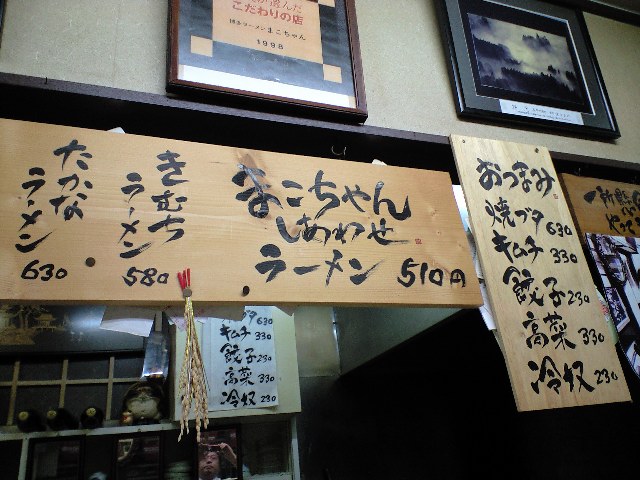 こだわりの店
博多ラーメン まこちゃん
1998
まこちゃん
しあわせ
ラーメン 510円
きむち
ラーメン
580
たかな
ラーメン
630
おつまみ
焼ブタ 630
キムチ 330
餃子 230
高菜 330
冷奴 230
ブタ 630
キムチ 330
餃子 230
高菜 330
冷奴 230